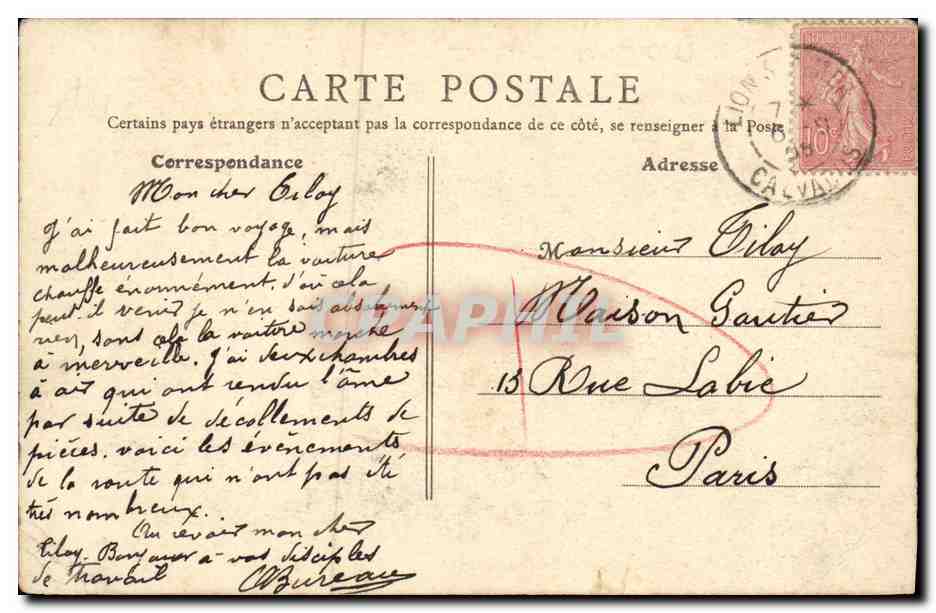 CARTE POSTALE
Certains pays étrangers n'acceptent pas la correspondance de ce côté, se renseigner à la Poste
Correspondance
Mon cher Tiloy
J'ai fait bon voyage, mais
malheureusement la voiture
chauffe énormément. d'où cela
peut il venir je n'en sais absolument
rien, sans cela la voiture marche
à merveille. J'ai deux chambres
à air qui ont rendu l'âme
par suite de décollements de
pièces. voici les événements
de la route qui n'ont pas été
très nombreux.
Au revoir mon cher
Tiloy. Bonjour à vos disciples
de travail
CBureau
Adresse
Monsieur Tiloy
Maison Gautier
15 Rue Labie
Paris
REPUBLIQUE FRANÇAISE
10c
LION S MER
7 *
6
CALVADOS
DELCAMPHIL